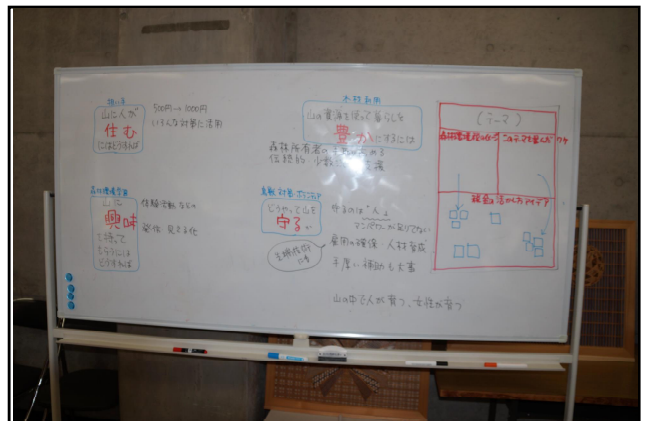 担い手
山に人が
住む
にはどうすれば
500円→1000円
いろんな対策に活用
木材利用
山の資源を使って暮らしを
豊かにするには
森林所有者の
伝統的・少数
森林環境学習
山に
興味
を持って
もらうには
どうすれば
体験活動
発信 見える化
鳥獣対策・ボランティア
どうやって山を
守るか
守るのは"人"
マンパワーが足りてない
雇用の確保 人材育成
手厚い補助も大事
山の中で人が育つ、女性が育つ
(テーマ)
森林環境税の
このテーマを選んだワケ
税金の活かし方アイデア